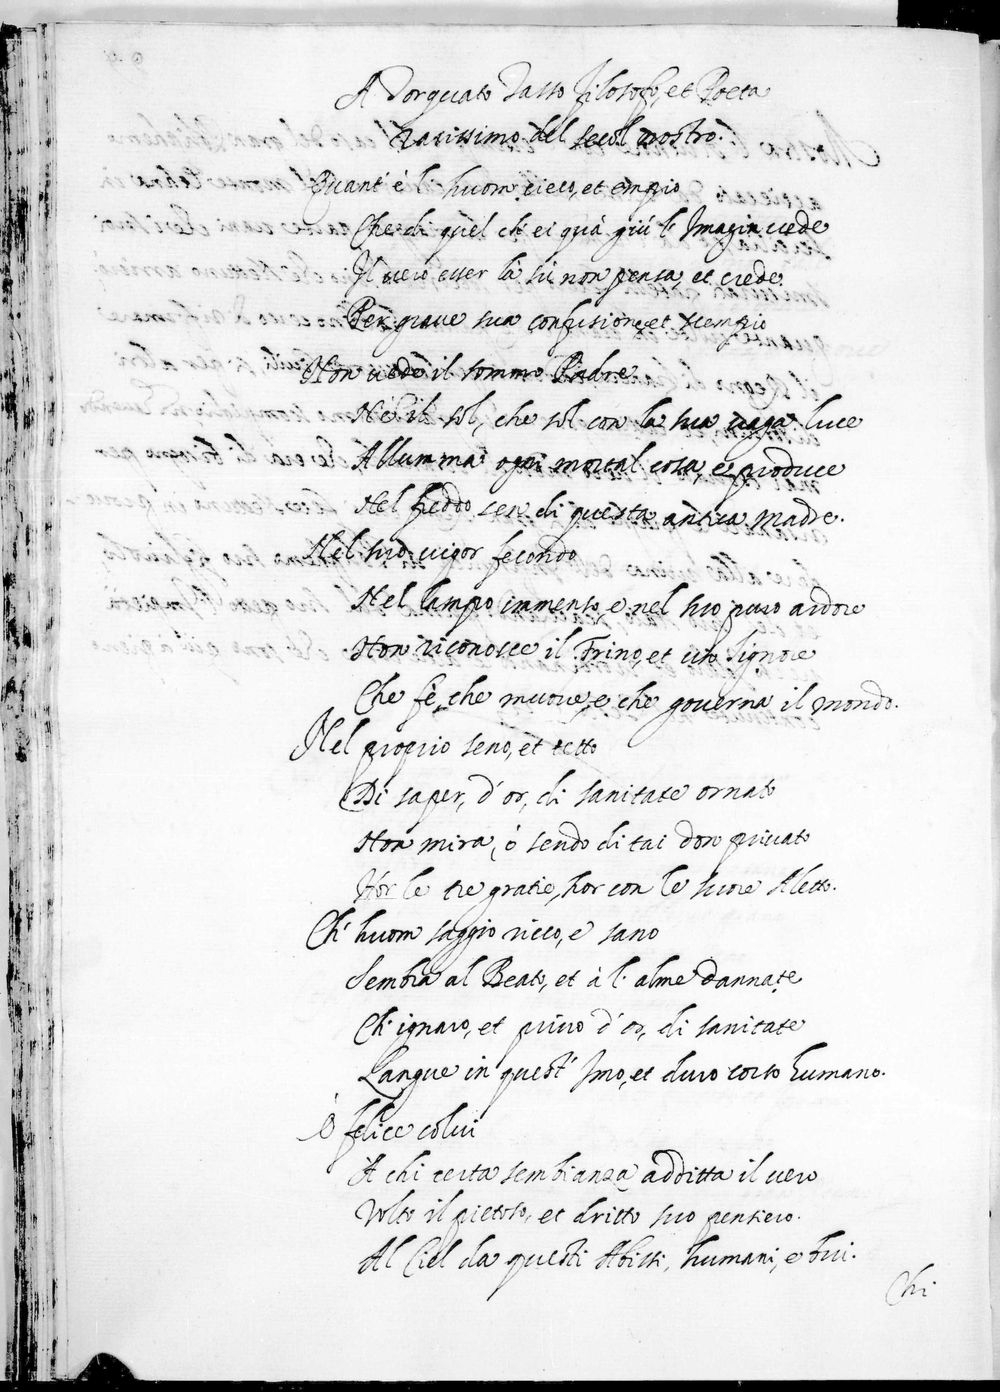 A Torquato Tasso filosofo, et Poeta
rarissimo del secol nostro.
Quant' é l' huom cieco, et empio
Che di quel ch' ei quà giú l' Imagin uede
Il uero esser là sù non pensa, et crede
Per graue sua confusione, et scempio
Non uede il sommo Padre
Né il sol, che sol con la sua uaga luce
Allumma ogni mortal cosa, e produce
Nel freddo sen di questa antica Madre.
Nel suo uigor fecondo
Nel lampo immenso, e nel suo puro ardore
Non riconosce il Trino, et uno Signore
Che fè, che muoue, e che gouerna il mondo.
Nel proprio seno, et tetto
Di saper, d' or, di sanitate ornato
Non mira, ó sendo di tai don priuato
Hor le tre gratie, hor con le suore Aletto.
Ch' huom saggio ricco, e sano
Sembra al Beato, et à l' alme dannate
Ch' ignaro, et priuo d' or, di sanitate
Langue in quest' Imo, et duro corso humano.
O felice colui
A chi certa sembianza additta il uero
Volto il pietoso, et dritto suo pensiero.
Al Ciel da questi Abissi, humani, e bui.
Chi